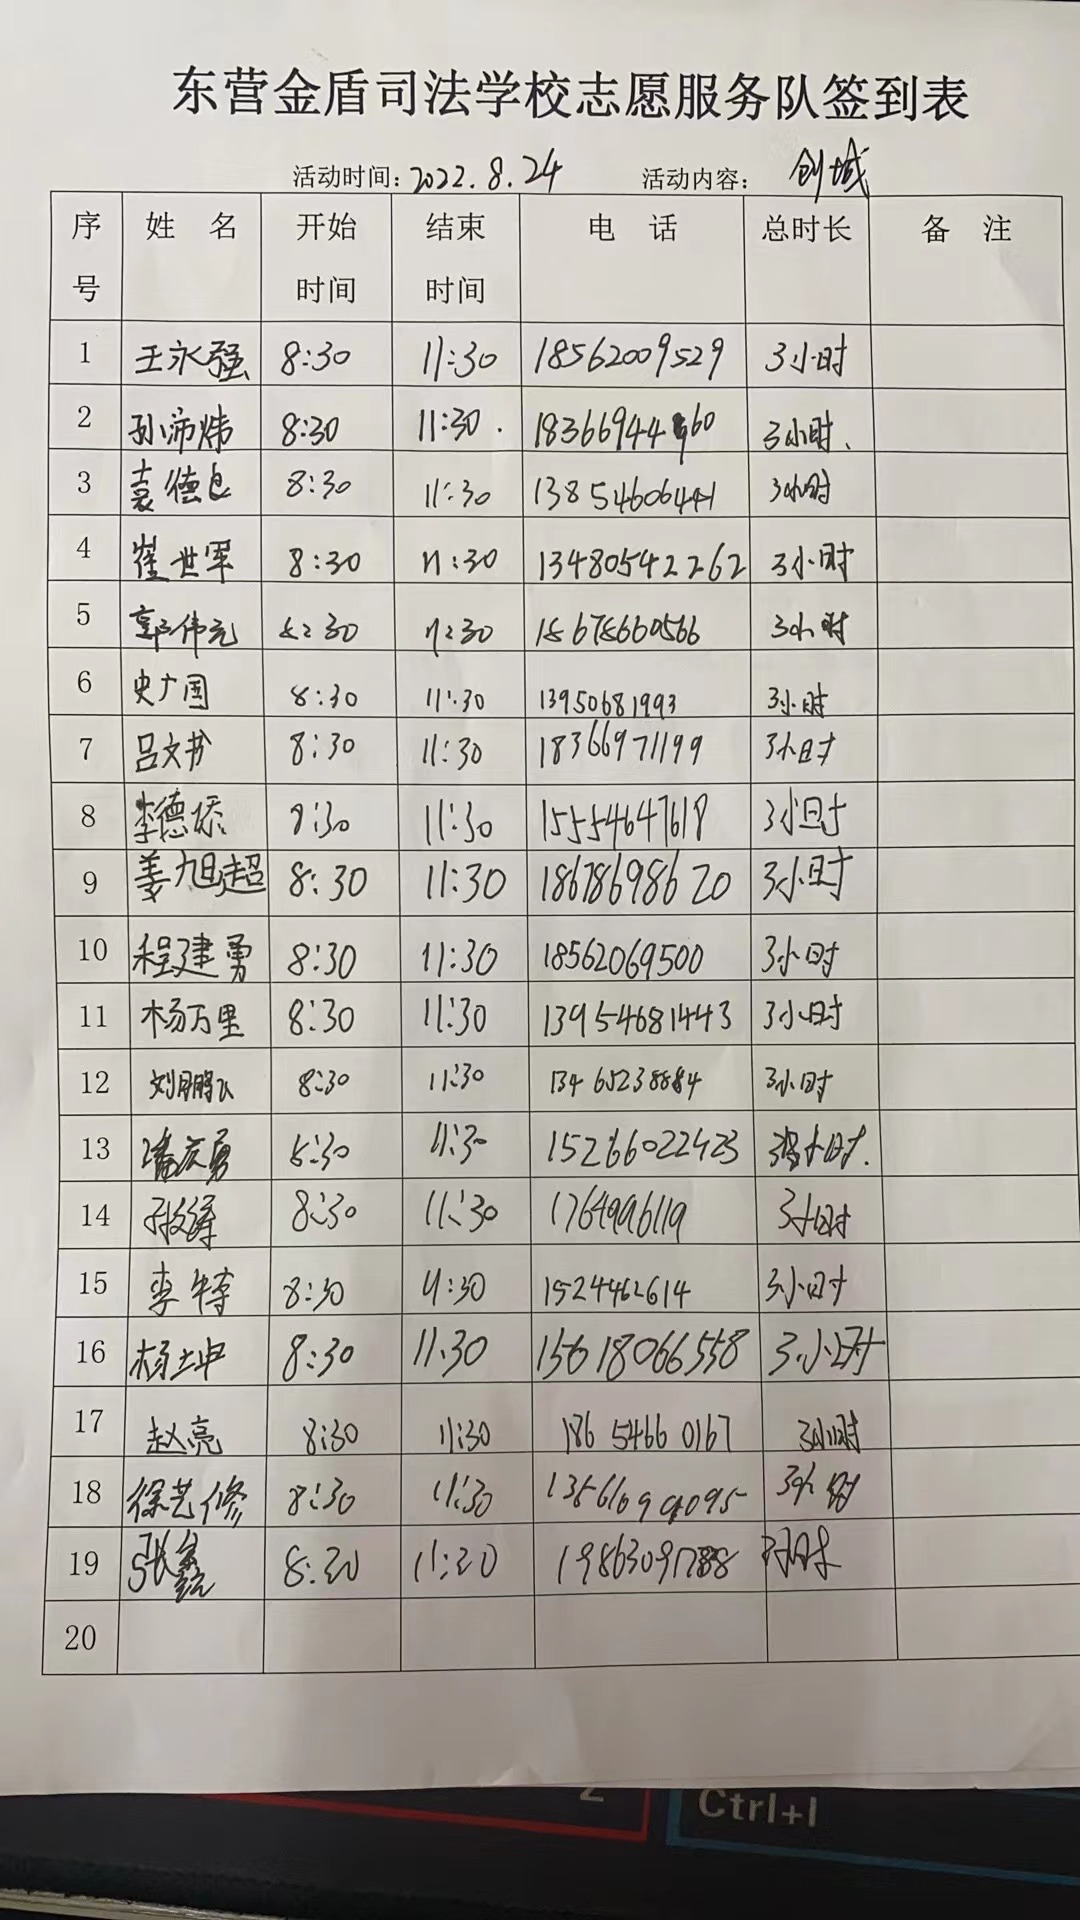 东营金盾司法学校志愿服务队签到表
活动时间：2022.8.24 活动内容： 创城
序号 姓 名 开始时间 结束时间 电 话 总时长 备 注
1 王永强 8:30 11:30 18562009529 3小时
2 孙沛炜 8:30 11:30. 18366944960 3小时.
3 袁德 8:30 11:30 13854606441 3小时
4 崔世军 8:30 11:30 13480542262 3小时
5 郭伟元 8:30 11:30 3小时
6 史广国 8:30 11:30 13950681993 3小时
7 吕文书 8:30 11:30 18366971199 3小时
8 李德添 8:30 11:30 15554647618 3小时
9 姜旭超 8:30 11:30 18678698620 3小时
10 程建勇 8:30 11:30 18562069500 3小时
11 杨万里 8:30 11:30 13954681443 3小时
12 刘鹏飞 8:30 11:30 13465238884 3小时
13 潘庆勇 8:30 11:30 15266022423 3小时.
14 8:30 11:30 1764996119 3小时
15 李特 8:30 11:30 1524462614 3小时
16 杨土坤 8:30 11:30 15618066558 3小时
17 赵亮 8:30 11:30 18654660167 3小时
18 徐艺修 8:30 11:30 3小时
19 张鑫 8:30 11:30 19863091788 3小时
20
Z
Ctrl+I